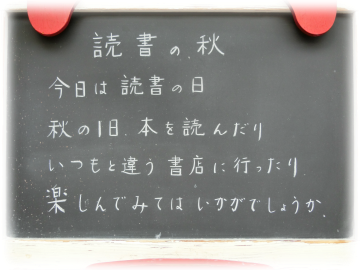 読書の秋
今日は読書の日
秋の1日、本を読んだり
いつもと違う書店に行ったり
楽しんでみてはいかがでしょうか。